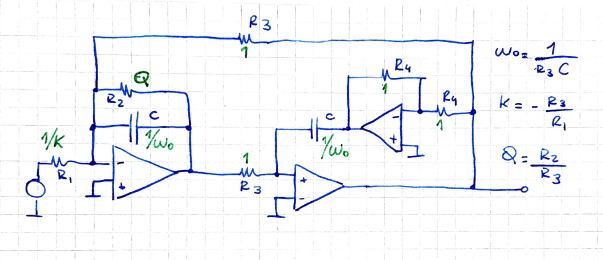 R3
1
Q
R2
C
1/ω0
1/K
R1
-
+
1
R3
C
1/ω0
R4
1
R4
1
-
+
+
-
ω0 = 1 / R3 C
K = - R3 / R1
Q = R2 / R3